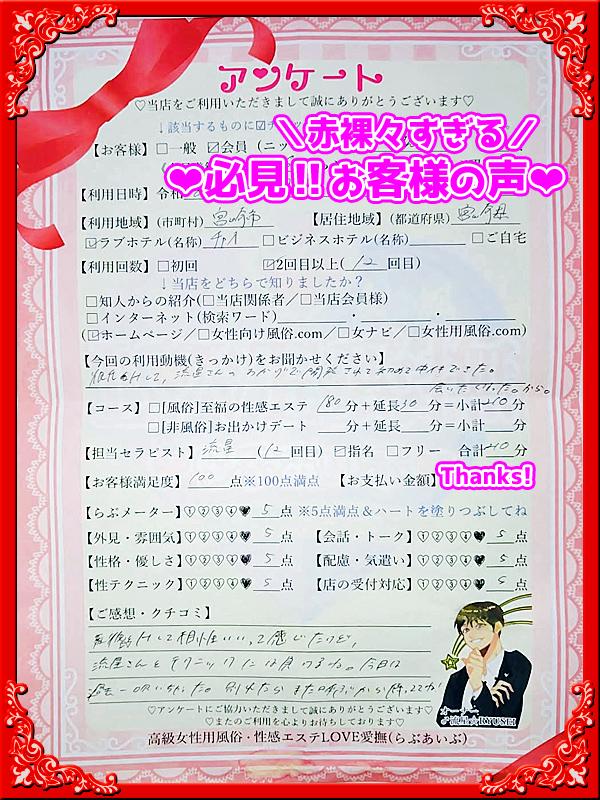 アンケート
♡当店をご利用いただきまして誠にありがとうございます♡
↓該当するものに☑チ
＼赤裸々すぎる／
❤必見!!お客様の声❤
【お客様】□一般 ☑会員 (ニッ
【利用日時】令和
【利用地域】(市町村) 宮崎市 【居住地域】(都道府県) 宮崎県
☑ラブホテル(名称) チャイ □ビジネスホテル(名称) □ご自宅
【利用回数】□初回 ☑2回目以上( 12 回目)
↓当店をどちらで知りましたか？
□知人からの紹介(□当店関係者／□当店会員様)
□インターネット(検索ワード) ・ ・
(☑ホームページ／□女性向け風俗.com／□女ナビ／□女性用風俗.com)
【今回の利用動機(きっかけ)をお聞かせください】
流星さんのおかげで開発されて初めて中イキできた。
会いたくなった。から。
【コース】□[風俗]至福の性感エステ 180 分＋延長 30 分＝小計 210 分
□[非風俗]お出かけデート 分＋延長 分＝小計 分
【担当セラピスト】 流星 ( 12 回目) ☑指名 □フリー 合計 210 分
【お客様満足度】 100 点※100点満点 【お支払い金額】 Thanks!
【らぶメーター】①②③④♥ 5 点 ※5点満点＆ハートを塗りつぶしてね
【外見・雰囲気】①②③④♥ 5 点 【会話・トーク】①②③④♥ 5 点
【性格・優しさ】①②③④♥ 5 点 【配慮・気遣い】①②③④♥ 5 点
【性テクニック】①②③④♥ 5 点 【店の受付対応】①②③④♥ 5 点
【ご感想・クチコミ】
Hして相性いい、って感じたけど、
流星さんとテクニックには
♡アンケートにご協力いただきまして誠にありがとうございます♡
♡またのご利用を心よりお待ちしております♡
オーナー
♂流星☆RYUSEI
高級女性用風俗・性感エステLOVE愛撫(らぶあいぶ)